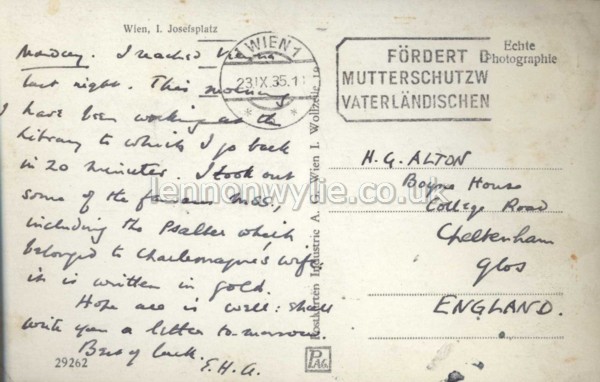 Wien, I. Josefsplatz
Monday. I reached Vienna
last night. This morning
I have been working at the
Library to which I go back
in 20 minutes. I took out
some of the famous MSS,
including the Psalter which
belonged to Charlemagne's wife.
it is written in gold.
Hope all is well: shall
write you a letter to-morrow.
Best of luck.
E.H.A.
29262
WIEN 1
23.IX.35.1
FÖRDERT D
MUTTERSCHUTZW
VATERLÄNDISCHEN
Echte
Photographie
Postkarten Industrie A. G. Wien I. Wollzeile 19
PAG
H. G. ALTON
Boyne House
College Road
Cheltenham
Glos
ENGLAND.
lennonwylie.co.uk